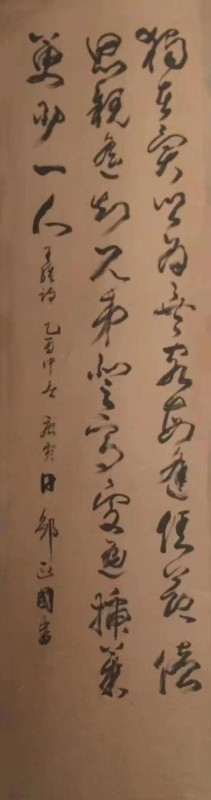 獨在異鄉為異客每逢佳節倍
思親遙知兄弟登高處遍插茱
萸少一人 王維詩 乙酉中 日 正國書